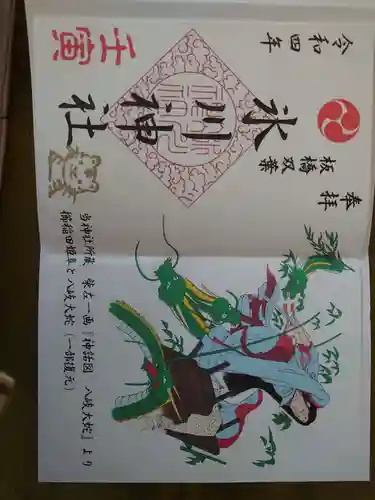 奉拝
板橋 双葉
氷川神社
令和四年
壬寅
当神社所蔵 柴左一画『神話図 八岐大蛇』より
櫛稲田姫尊と八岐大蛇(一部復元)